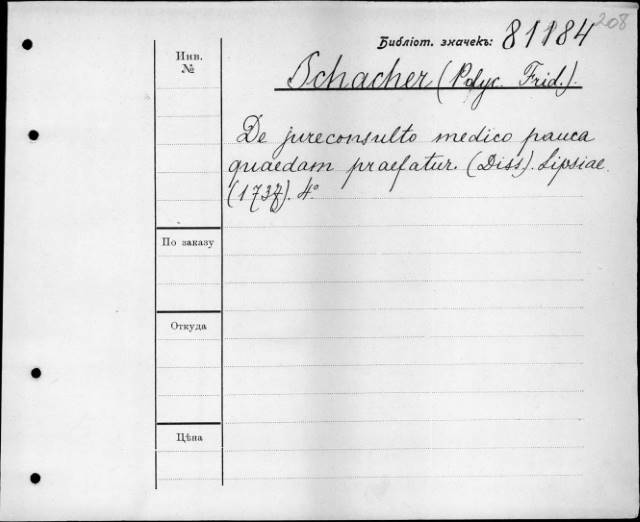 208
Библіот. значекъ: 81184
Инв.
№
Schacher (Polyc. Frid.).
De jureconsulto medico pauca
quaedam praefatur. (Diss). Lipsiae.
(1737). 4°
По заказу
Откуда
Цѣна